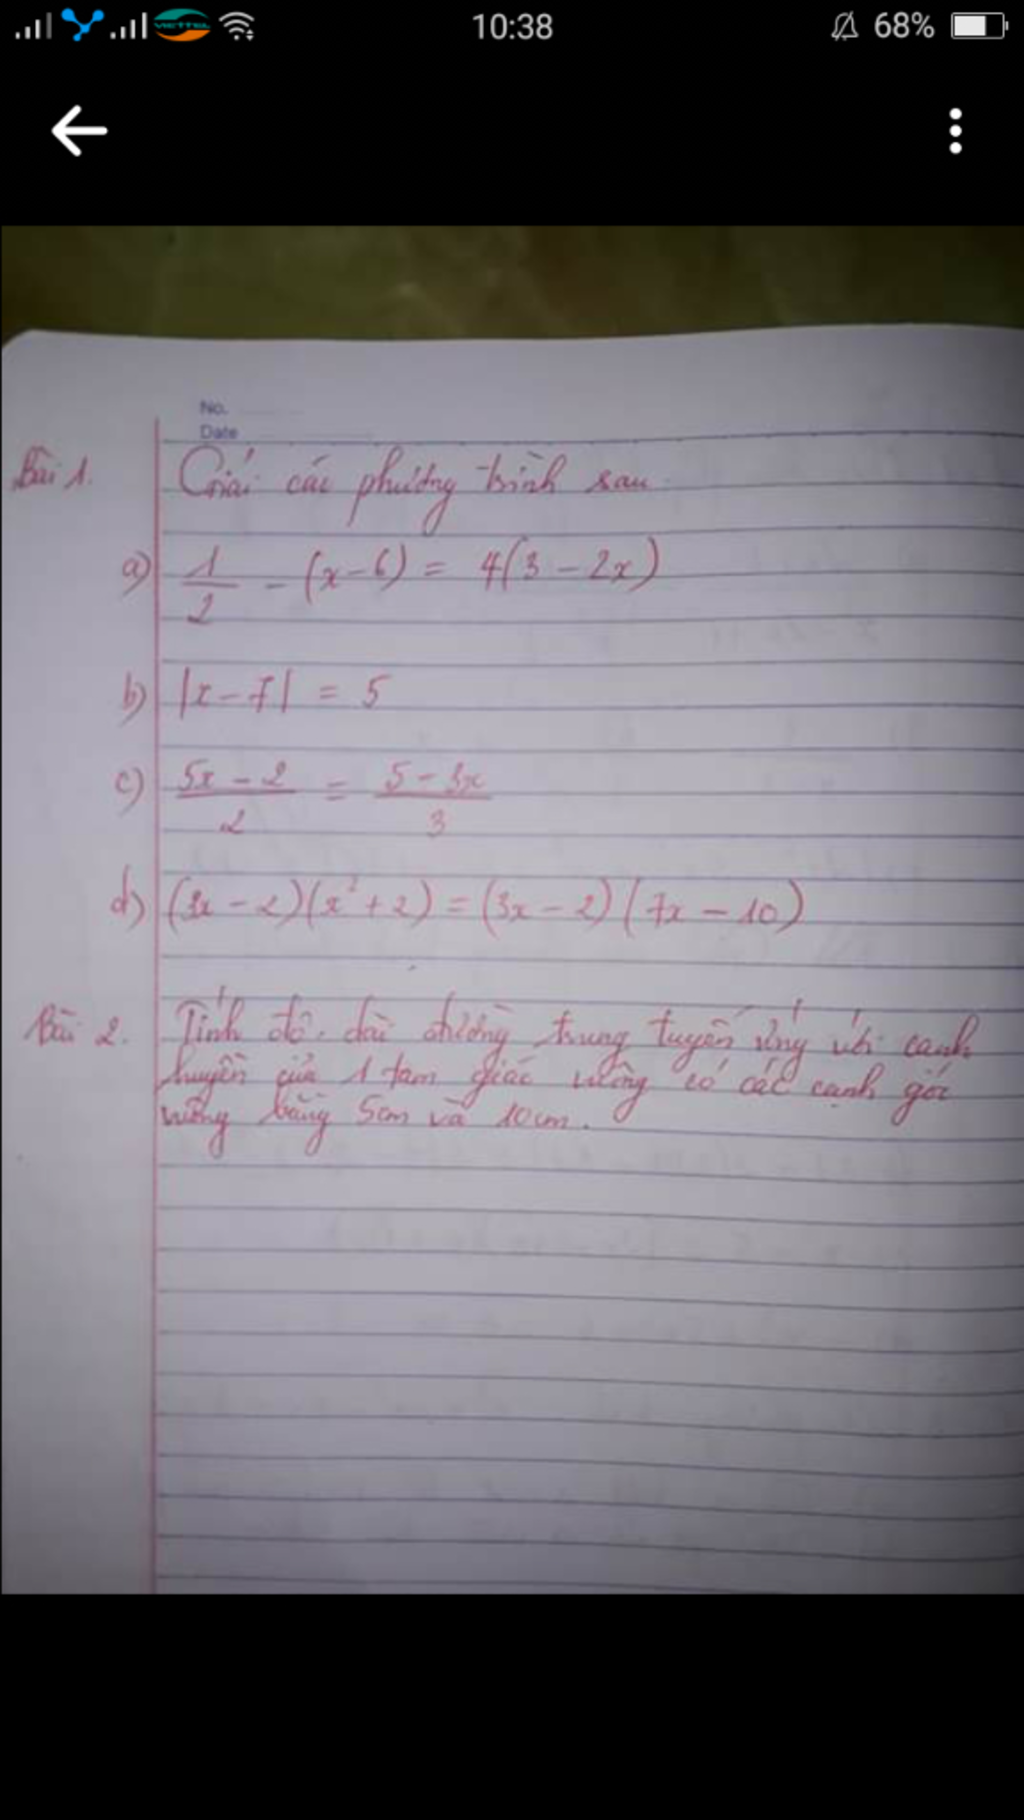 VIETTEL
10:38
68%
No.
Date
Bài 1. Giải các phương trình sau
a) 1/2 - (x-6) = 4(3-2x)
b) |x-7| = 5
c) (5x-2)/2 = (5-3x)/3
d) (3x-2)(x²+2) = (3x-2)(7x-10)
Bài 2. Tính độ dài đường trung tuyến ứng với cạnh
huyền của 1 tam giác vuông có các cạnh góc
vuông bằng 5cm và 10cm.